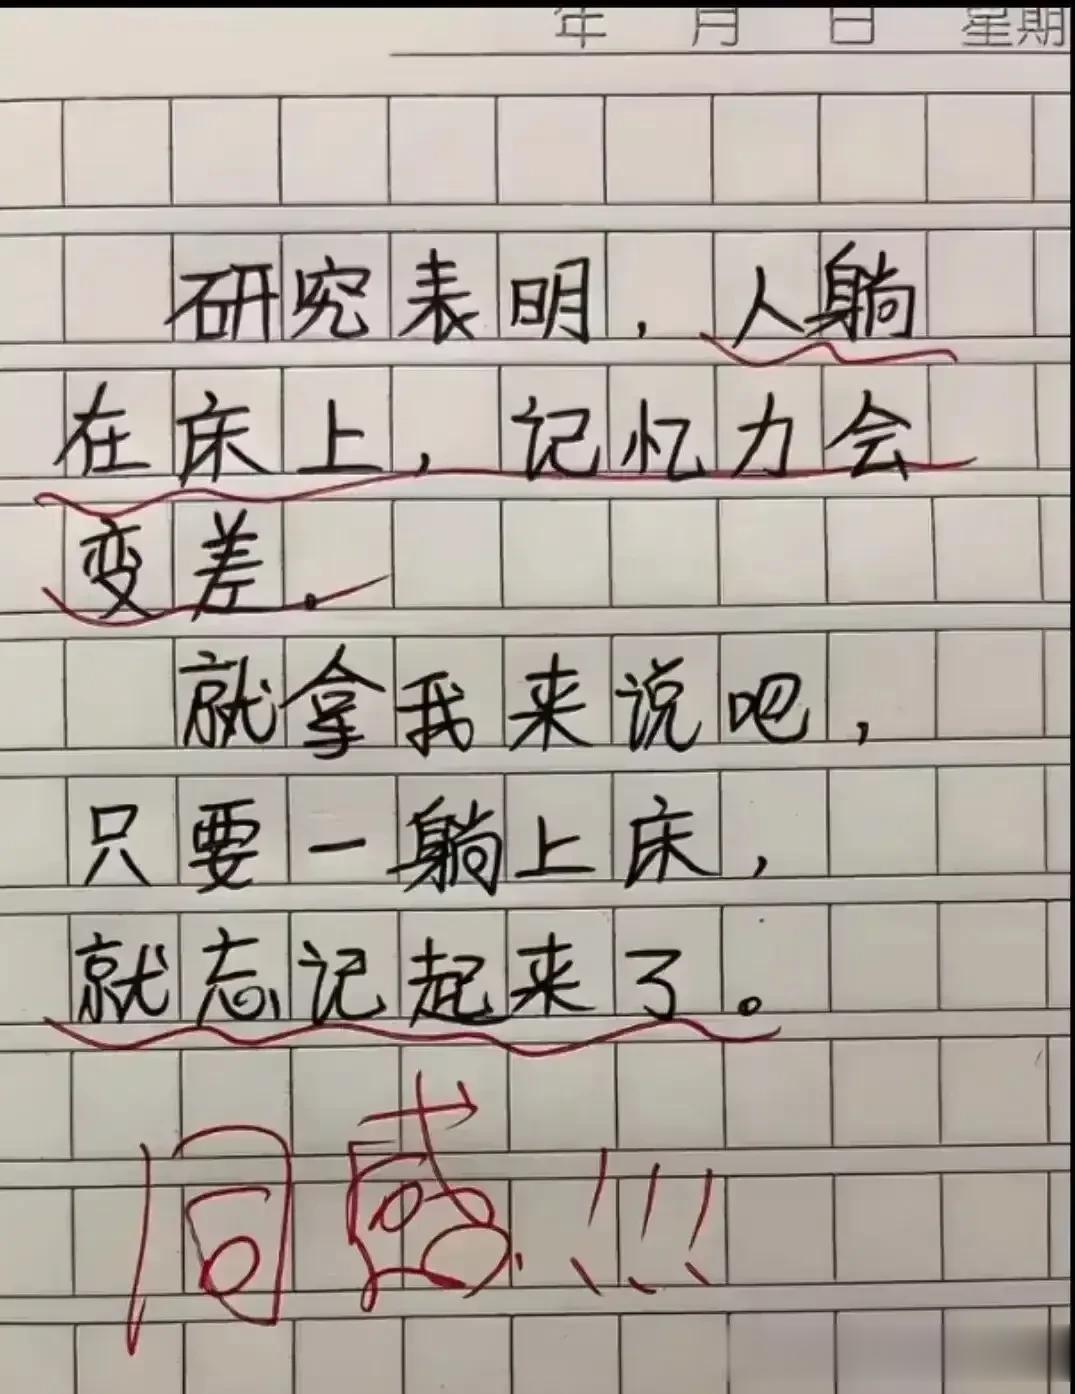 年 月 日 星期
研究表明，人躺
在床上，记忆力会
变差.
就拿我来说吧，
只要一躺上床，
就忘记起来了。
同感!!!